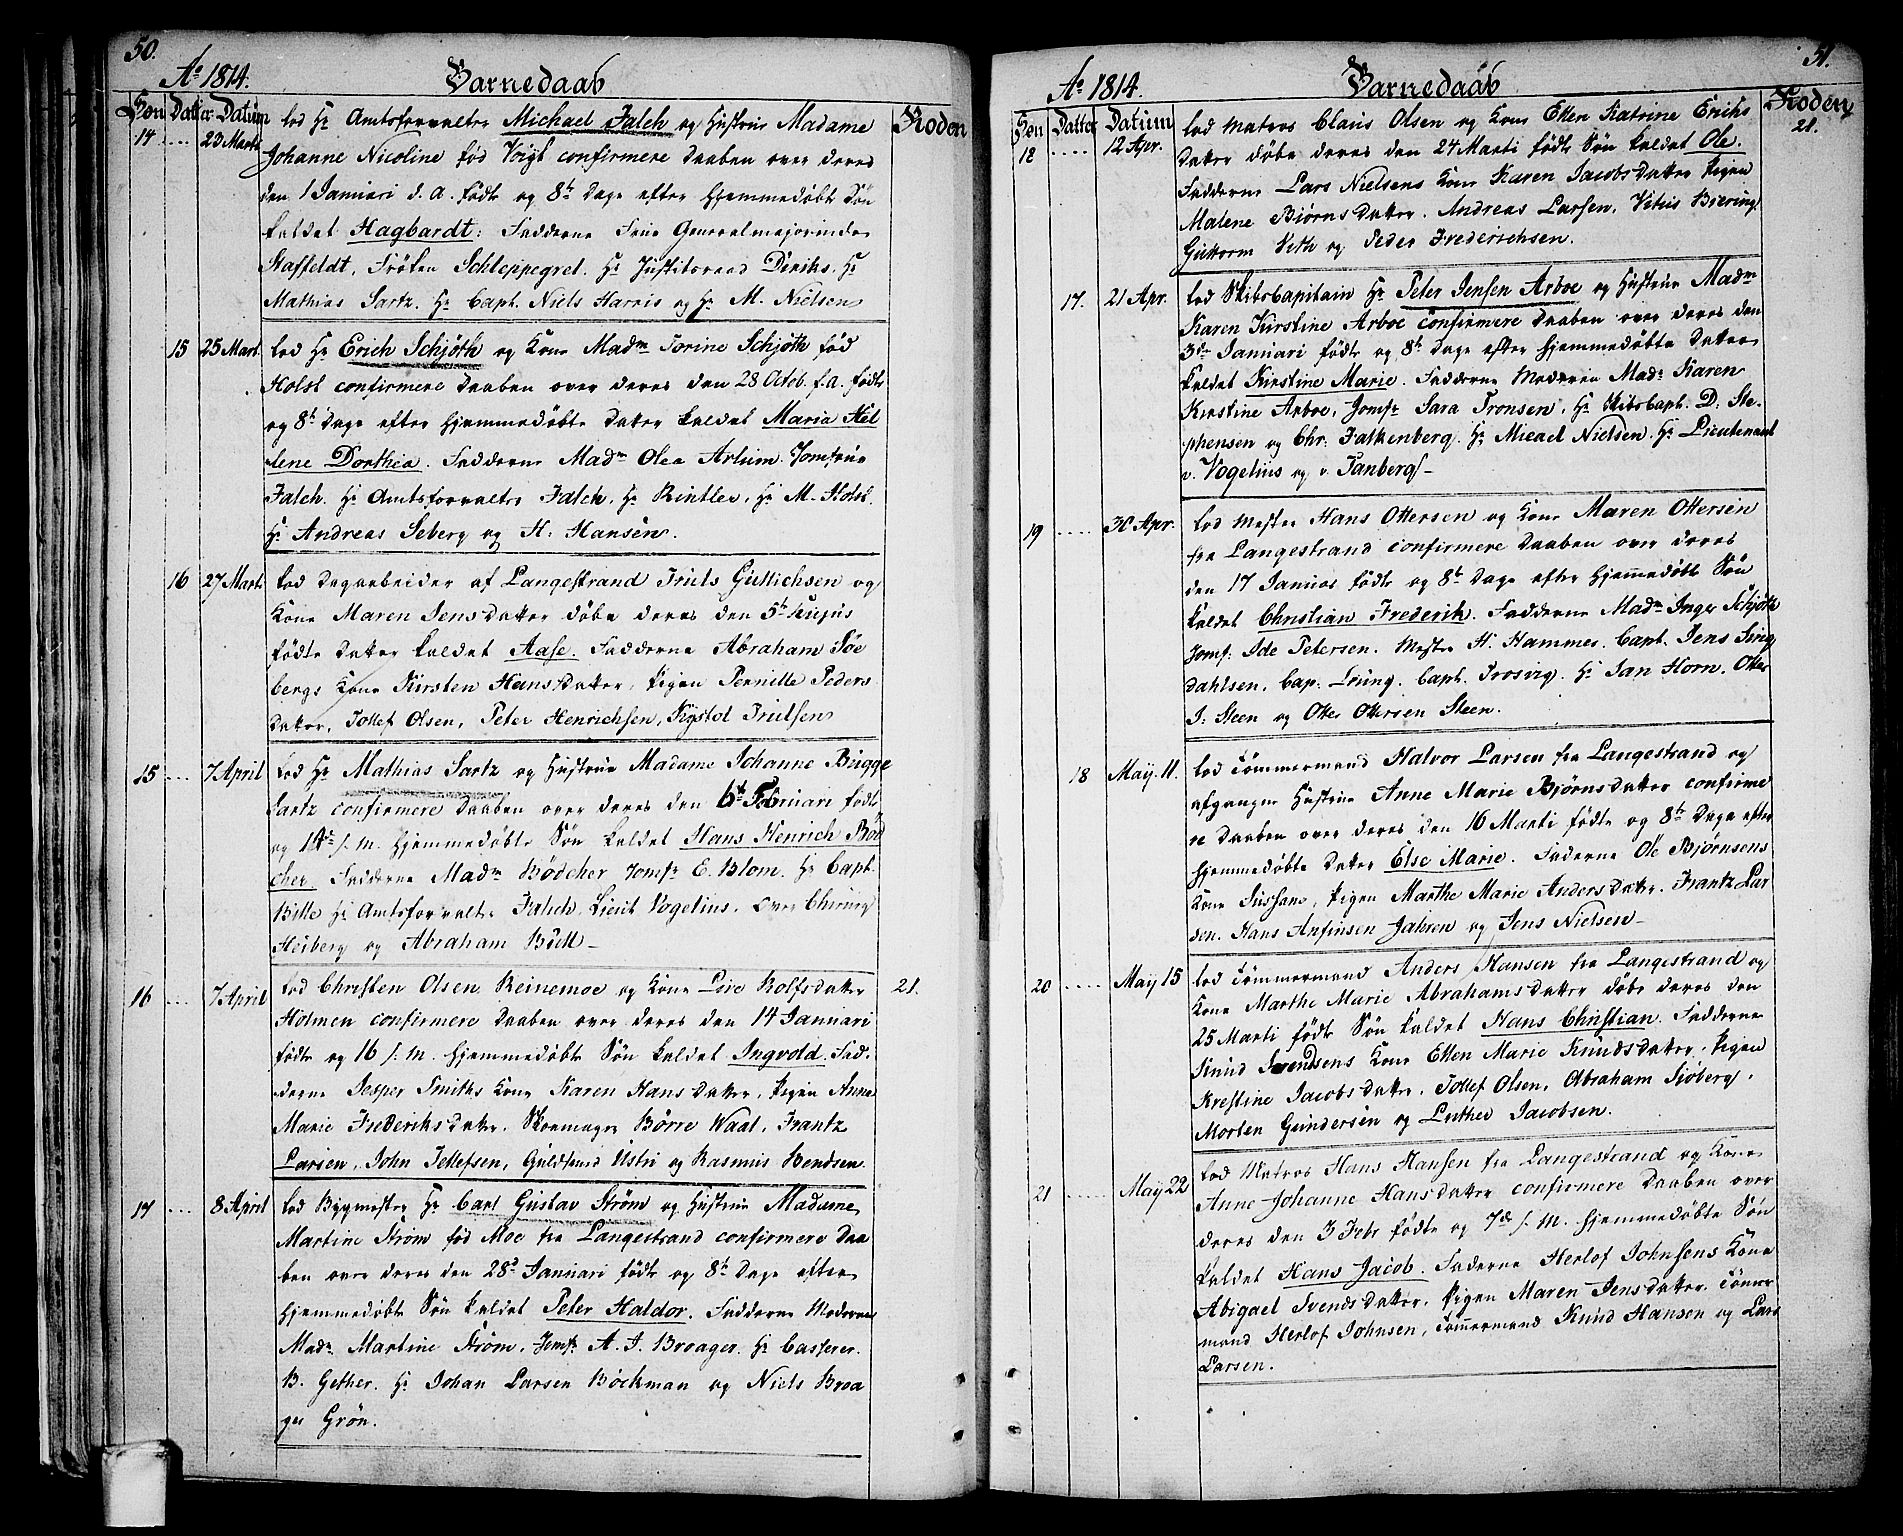 50.
Ao 1814. Barnedaab
Søn Datter Datum Roden
14 .... 23 Marti lod Hr Amtsforvalter Michael Falch og Hustrue Madame
Johanne Nicoline fød Voigt confirmere Daaben over deres
den 1 Januari d. a. fødte og 8te Dage efter hjemmedøbte Søn
kaldet Hagbardt: Fadderne Frue Generalmajorinde
Staffeldt, Frøken Schleppegrel. Hr Justitsraad Deriks. Hr
Mathias Sartz. Hr Capt. Niels Harris og Hr M. Nielsen
15 25 Mart. lod Hr Erich Schjøth og Kone Madm Torine Schjøth fød
Holst confirmere Daaben over deres den 28 Octob. f. a. fødte
og 8te Dage efter hjemmedøbte Datter kaldet Maria Hel
lene Dorthea. Fadderne Madm Olea Artum. Jomfrue
Falch. Hr Amtsforvalter Falch, Hr Rintler, Hr M. Holst.
Hr Andreas Seberg og H. Hansen.
16 27 Mart. lod Dagarbeider af Langestrand Truls Guttichsen og
Kone Maren Jensdatter døbe deres den 5te hujus
fødte Datter kaldet Aase. Fadderne Abraham Søe
bergs Kone Kirsten Hansdatter, Pigen Pernille Peders
datter, Tollef Olsen, Peter Henrichsen, Kystol Trulsen
15 .... 7 April lod Hr Mathias Sartz og Hustrue Madame Johanne Brigge
Sartz confirmere Daaben over deres den 6te Februari fødte
og 14de s. M. hjemmedøbte Søn kaldet Hans Henrich Bød
cher. Fadderne Madm Bødcher, Jomfr E. Blom. Hr Capt.
Bille Hr Amtsforvalter Falch, Lieut Vogelius. Over Chirurg
Heiberg og Abraham Bøell
16 .... 7 April lod Christen Olsen Reinemoe og Kone Live Rolfsdatter 21.
Holmen confirmere Daaben over deres den 14 Januari
fødte og 16 s. M. hjemmedøbte Søn kaldet Ingvold. Fad-
derne Jesper Smiths Kone Karen Hansdatter, Pigen Anne
Marie Frederiksdatter. Skoemager Børre Waal, Frantz
Larsen, John Tellefsen, Guldsmed Ustri og Rasmus Bendsen
17 .... 8 April lod Bygmester Hr Carl Gustav Strøm og Hustrue Madame
Martine Strøm fød Moe fra Langestrand confirmere Daa
ben over deres den 28de Januari fødte og 8te Dage efter
hjemmedøbte Søn kaldet Peter Haldor. Fadderne Moderen
Madm Martine Strøm, Jomfr A. J. Broager. Hr Casserer
B. Gether. Hr Johan Larsen Bøckman og Niels Broa
ger Grøn.
51.
Ao 1814. Barnedaab
Søn Datter Datum Roden
18 .... 12 Apr. lod Matros Claus Olsen og Kone Ellen Katrine Erichs 21.
datter døbe deres den 24 Marti fødte Søn kaldet Ole.
Fadderne Lars Nielsens Kone Karen Jacobsdatter Pigen
Malene Biørnsdatter. Andreas Larsen, Vitus Biering
Guttorm Veth og Peder Frederichsen.
17. 21 Apr. lod Skibscapitain Hr Peter Jensen Arboe og Hustrue Madm
Karen Kirstine Arboe confirmere Daaben over deres den
3de Januari fødte og 8te Dage efter hjemmedøbte Datter
kaldet Kirstine Marie. Fadderne Moderen Madm Karen
Kirstine Arboe, Jomfr Sara Tronsen, Hr Skibscapt. D. Ste-
phensen og Chr. Falkenberg. Hr Micael Nielsen. Hr Lieutenant
v. Vogelius og v. Tanberg
19 .... 30 Apr. lod Mester Hans Ottersen og Kone Maren Ottersen
fra Langestrand confirmere Daaben over deres
den 17 Januar fødte og 8te Dage efter hjemmedøbte Søn
kaldet Christian Frederik. Fadderne Madm Inger Schjøth
Jomf. Ide Petersen. Mester H. Hammer. Capt. Jens Sing
dahlsen. Cap. Liung. Capt. Trosvig. Hr Jan Horn. Otter
J. Steen og Otter Ottersen Steen.
18 May. 11. lod Tømmermand Halvor Larsen fra Langestrand og
afgangne Hustrue Anne Marie Bjørnsdatter confirme
re Daaben over deres den 16 Marti fødte og 8te Dage efter
hjemmedøbte Datter Else Marie. Faderne Ole Bjørnsens
Kone Sussane, Pigen Marthe Marie Andersdatter. Frantz Lar
sen. Hans Anfinsen Jahren og Jens Nielsen
20 .... May 15 lod Tømmermand Anders Hansen fra Langestrand og
Kone Marthe Marie Abrahamsdatter døbe deres den
25 Marti fødte Søn kaldet Hans Christian. Fadderne
Knud Svendsens Kone Ellen Marie Knudsdatter. Pigen
Krestine Jacobsdatter. Tollef Olsen, Abraham Sjøberg,
Morten Gundersen og Luther Jacobsen.
21 .... May 22 lod Matros Hans Hansen fra Langestrand og Kone
Anne Johanne Hansdatter confirmere Daaben over
deres den 3 Febr fødte og 7de s. M. hjemmedøbte Søn
kaldet Hans Jacob. Faderne Herlof Johnsens Kone
Abigael Svendsdatter. Pigen Maren Jensdatter. Tømmer
mand Herlof Johnsen, Tømmermand Knud Hansen og Lars
Larsen.